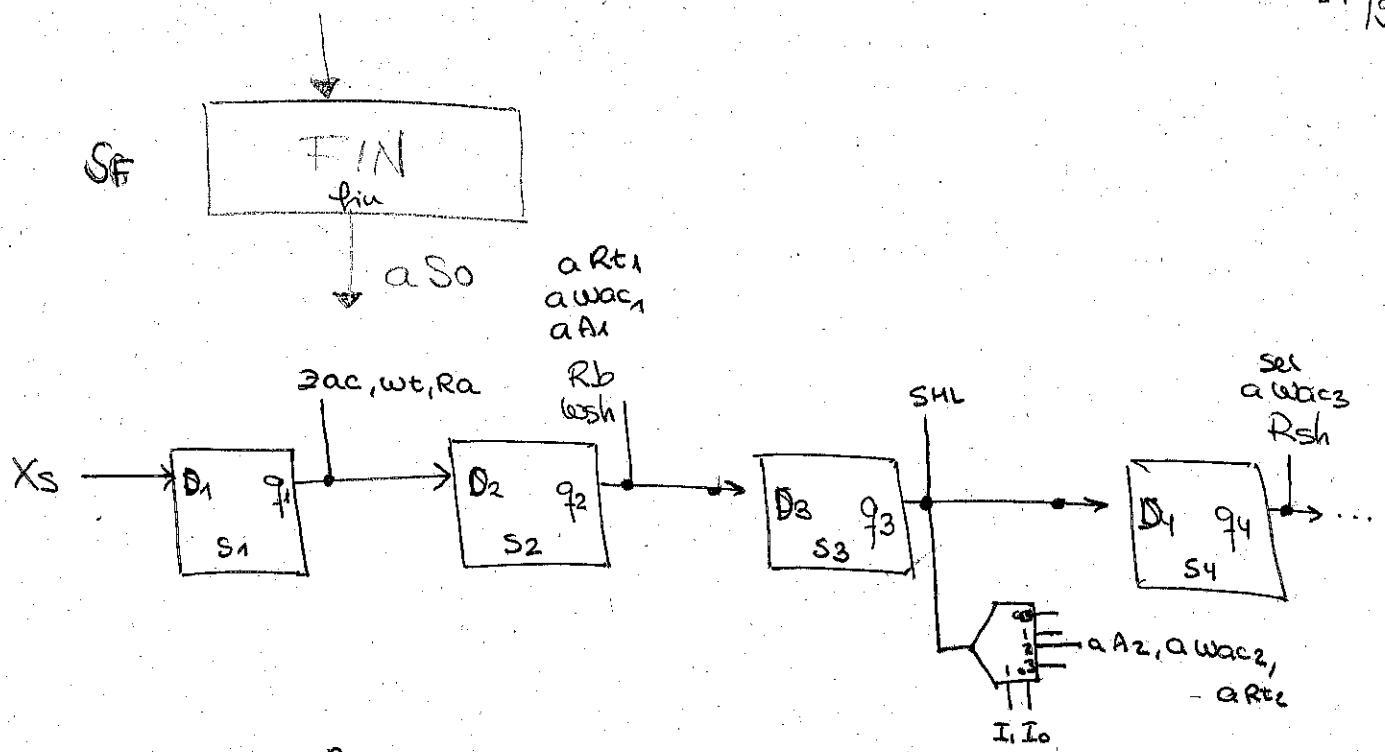 SF
FIN
fin
a S0
a Rt1
a wac1
a A1
Rb
wsh
zac, wt, Ra
SHL
sel
a wac3
Rsh
Xs
D1 q1
S1
D2 q2
S2
D3 q3
S3
D4 q4
S4
...
0
1
2
3
1 0
a A2, a wac2,
a Rt2
I1 I0